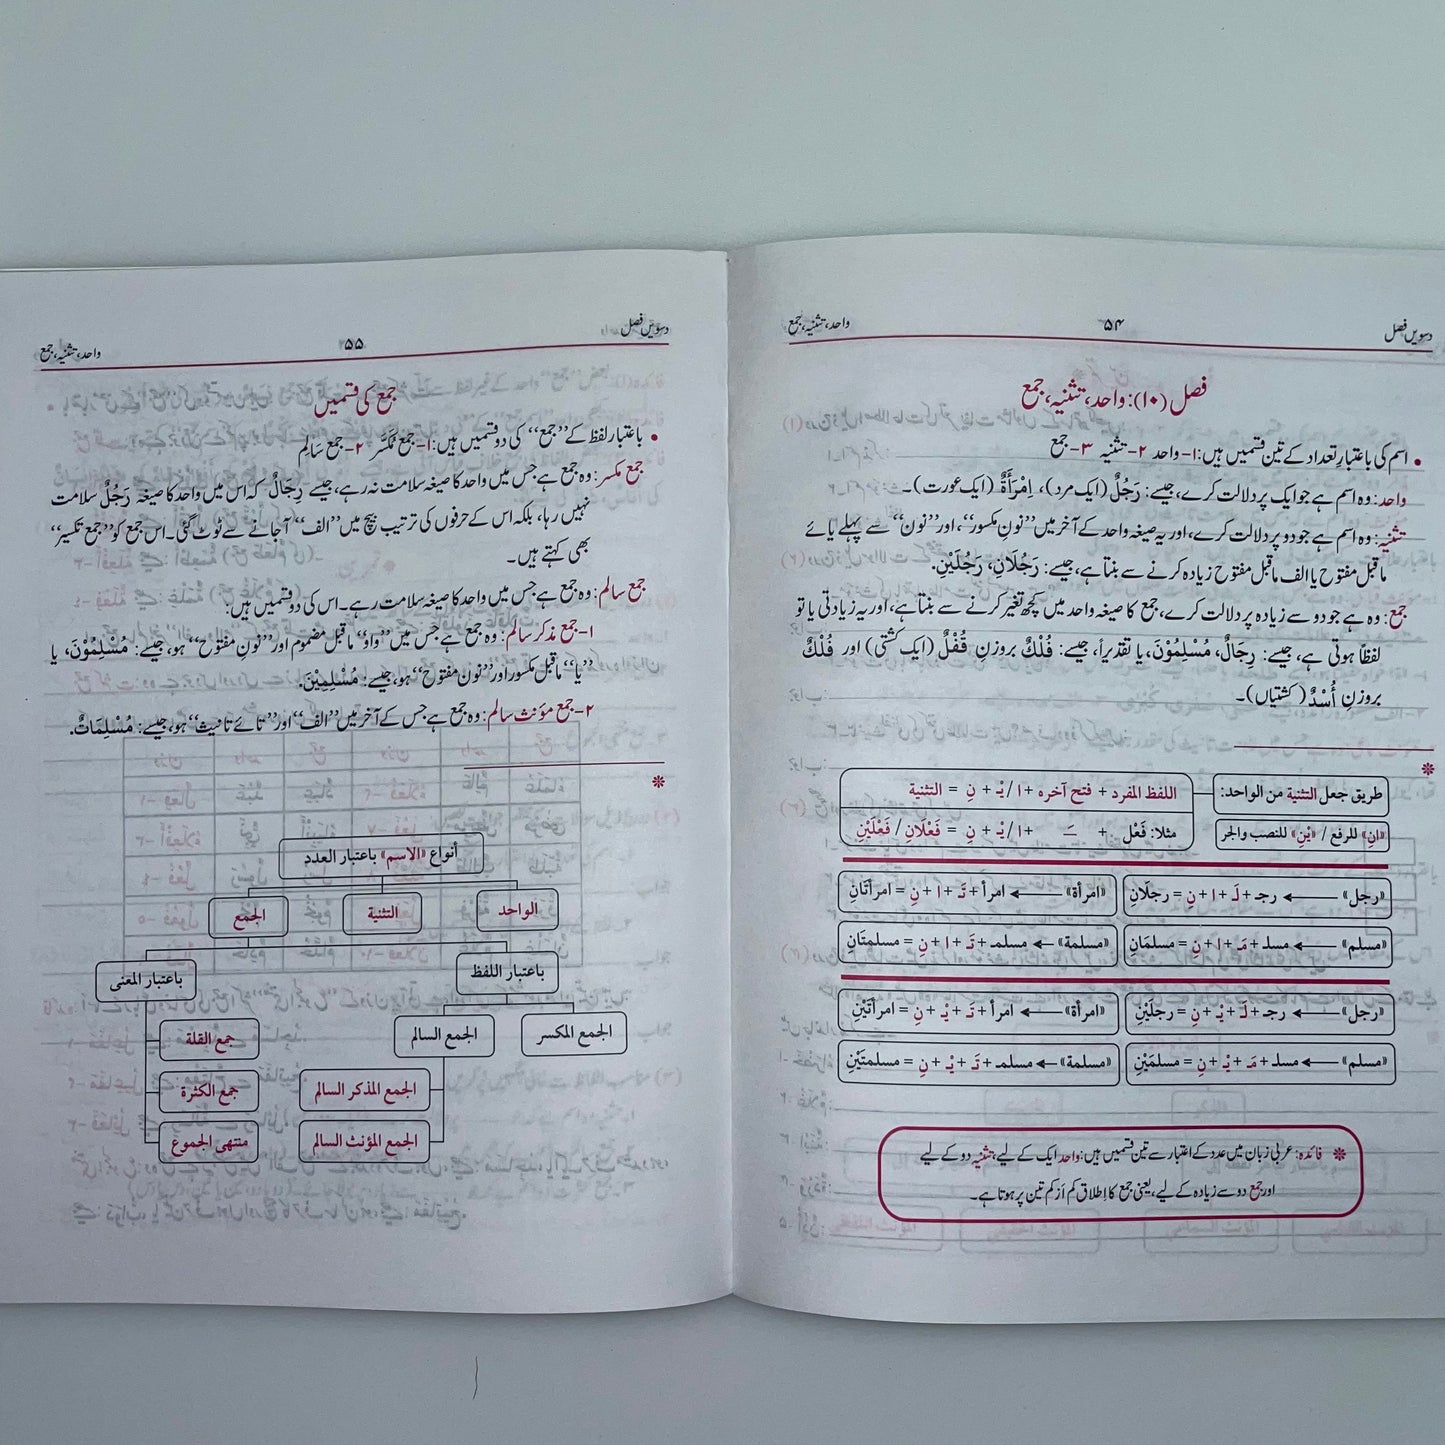 دسویں فصل
۵۴
واحد، تثنیہ، جمع
فصل (۱۰): واحد، تثنیہ، جمع
• اسم کی باعتبارِ تعداد کے تین قسمیں ہیں: ۱- واحد ۲- تثنیہ ۳- جمع
واحد: وہ اسم ہے جو ایک پر دلالت کرے، جیسے: رَجُلٌ (ایک مرد)، اِمْرَأَةٌ (ایک عورت)۔
تثنیہ: وہ اسم ہے جو دو پر دلالت کرے، اور یہ صیغہ واحد کے آخر میں ’’نونِ مکسور‘‘، اور ’’نون‘‘ سے پہلے یائے
ماقبل مفتوح یا الف ماقبل مفتوح زیادہ کرنے سے بنتا ہے، جیسے: رَجُلَانِ، رَجُلَيْنِ.
جمع: وہ ہے جو دو سے زیادہ پر دلالت کرے، جمع کا صیغہ واحد میں کچھ تغیر کرنے سے بنتا ہے، اور یہ زیادتی یا تو
لفظاً ہوتی ہے، جیسے: رِجَالٌ، مُسْلِمُوْنَ، یا تقدیراً، جیسے: فُلْكٌ بروزنِ قُفْلٌ (ایک کشتی) اور فُلْكٌ
بروزنِ أُسْدٌ (کشتیاں)۔
طريق جعل التثنية من الواحد:
اللفظ المفرد + فتح آخره + ا / يْـ + نِ = التثنية
«انِ» للرفع / «يْنِ» للنصب والجر
مثلا: فَعْل + ـَ + ا / يْـ + نِ = فَعْلَانِ / فَعْلَيْنِ
«رجل» ← رجـ + لَـ + ا + نِ = رجلَانِ
«امرأة» ← امرأ + تَـ + ا + نِ = امرأتَانِ
«مسلم» ← مسلـ + مَـ + ا + نِ = مسلمَانِ
«مسلمة» ← مسلمـ + تَـ + ا + نِ = مسلمتَانِ
«رجل» ← رجـ + لَـ + يْـ + نِ = رجلَيْنِ
«امرأة» ← امرأ + تَـ + يْـ + نِ = امرأتَيْنِ
«مسلم» ← مسلـ + مَـ + يْـ + نِ = مسلمَيْنِ
«مسلمة» ← مسلمـ + تَـ + يْـ + نِ = مسلمتَيْنِ
فائدہ: عربی زبان میں عدد کے اعتبار سے تین قسمیں ہیں: واحد ایک کے لیے، تثنیہ دو کے لیے
اور جمع دو سے زیادہ کے لیے، یعنی جمع کا اِطلاق کم اَز کم تین پر ہوتا ہے۔
دسویں فصل
۵۵
واحد، تثنیہ، جمع
جمع کی قسمیں
• باعتبارِ لفظ کے ’’جمع‘‘ کی دو قسمیں ہیں: ۱- جمع مُکَسَّر ۲- جمع سَالِم
جمع مکسر: وہ جمع ہے جس میں واحد کا صیغہ سلامت نہ رہے، جیسے رِجَالٌ کہ اس میں واحد کا صیغہ رَجُلٌ سلامت
نہیں رہا، بلکہ اس کے حرفوں کی ترتیب بیچ میں ’’الف‘‘ آجانے سے ٹوٹ گئی۔ اس جمع کو ’’جمع تکسیر‘‘
بھی کہتے ہیں۔
جمع سالم: وہ جمع ہے جس میں واحد کا صیغہ سلامت رہے۔ اس کی دو قسمیں ہیں:
۱- جمع مذکر سالم: وہ جمع ہے جس میں ’’واؤ‘‘ ماقبل مضموم اور ’’نونِ مفتوح‘‘ ہو، جیسے: مُسْلِمُوْنَ، یا
’’یا‘‘ ماقبل مکسور اور ’’نون مفتوح‘‘ ہو، جیسے: مُسْلِمِيْنَ.
۲- جمع مؤنث سالم: وہ جمع ہے جس کے آخر میں ’’الف‘‘ اور ’’تائے تانیث‘‘ ہو، جیسے: مُسْلِمَاتٌ.
أنواع «الاسم» باعتبار العدد
الواحد
التثنية
الجمع
باعتبار اللفظ
باعتبار المعنى
الجمع المكسر
الجمع السالم
جمع القلة
الجمع المذكر السالم
جمع الكثرة
الجمع المؤنث السالم
منتهى الجموع